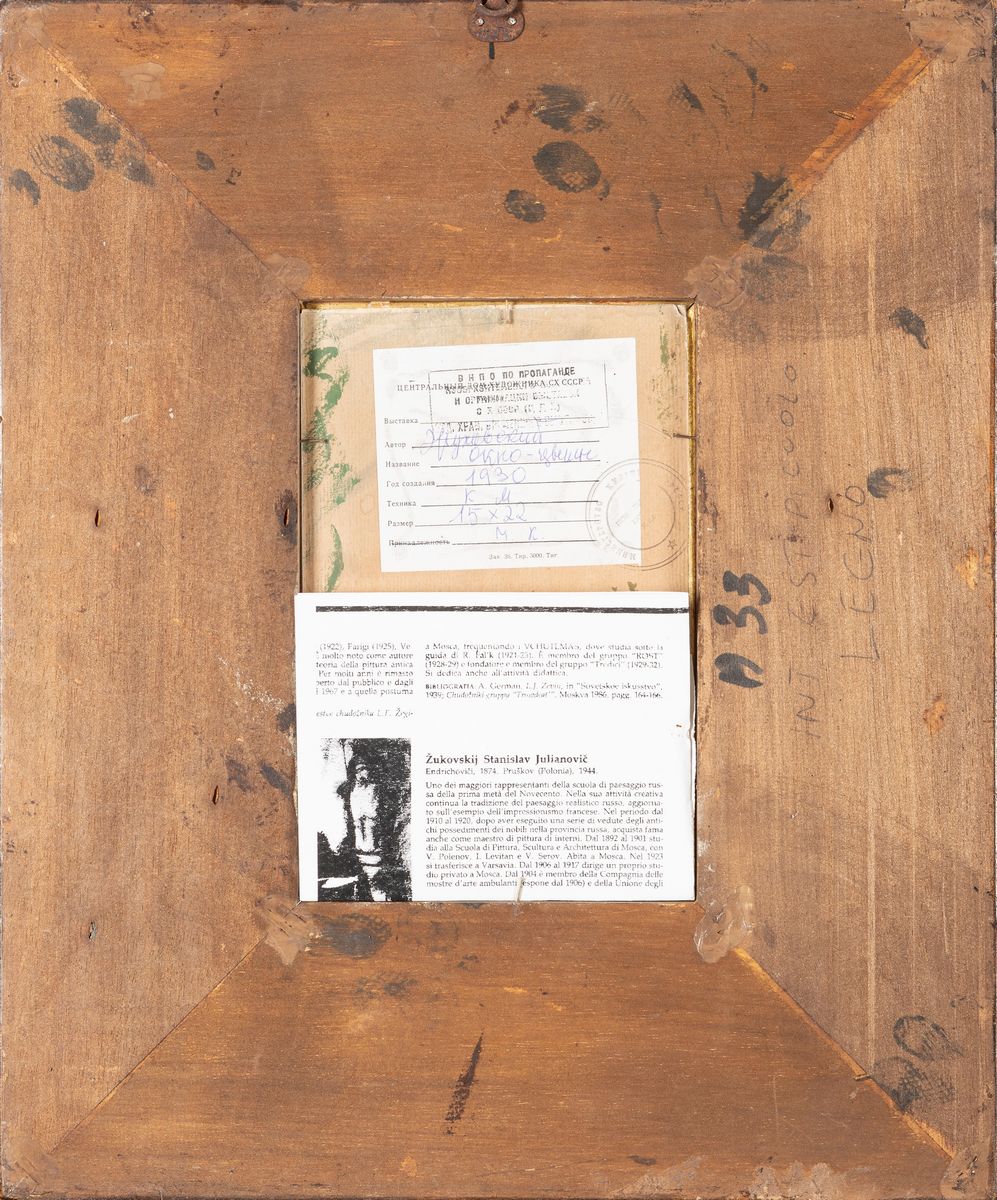 В Н П О ПО ПРОПАГАНДЕ
ЦЕНТРАЛЬНЫЙ ДОМ ХУДОЖНИКА СХ СССР
И ОРГАНИЗАЦИИ
Выставка
Автор Жуковский
Название окно-цветы
Год создания 1930
Техника К М
Размер 15 x 22
Принадлежность М К
Зак. 36. Тир. 3000. Тип
(1922), Parigi (1925), Ve-
molto noto come autore
teoria della pittura antica
Per molti anni è rimasto
perto dal pubblico e dagli
1967 e a quella postuma
estvo chudožnika L.F. Žegi-
a Mosca, frequentando i VCHUTEMAS, dove studia sotto la
guida di R. Fal'k (1921-25). È membro del gruppo "ROST"
(1928-29) e fondatore e membro del gruppo "Tredici" (1929-32).
Si dedica anche all'attività didattica.
BIBLIOGRAFIA: A. German, L.J. in "Sovetskoe iskusstvo",
1939; Chudožniki gruppy Moskva 1986, pagg. 164-166.
Žukovskij Stanislav Julianovič
Endrichoviči, 1874. Pruškov (Polonia), 1944.
Uno dei maggiori rappresentanti della scuola di paesaggio rus-
sa della prima metà del Novecento. Nella sua attività creativa
continua la tradizione del paesaggio realistico russo, aggiorna-
to sull'esempio dell'impressionismo francese. Nel periodo dal
1910 al 1920, dopo aver eseguito una serie di vedute degli anti-
chi possedimenti dei nobili nella provincia russa, acquista fama
anche come maestro di pittura di interni. Dal 1892 al 1901 stu-
dia alla Scuola di Pittura, Scultura e Architettura di Mosca, con
V. Polenov, I. Levitan e V. Serov. Abita a Mosca. Nel 1923
si trasferisce a Varsavia. Dal 1906 al 1917 dirige un proprio stu-
dio privato a Mosca. Dal 1904 è membro della Compagnia delle
mostre d'arte ambulanti (espone dal 1906) e della Unione degli
A 33
LEGNO